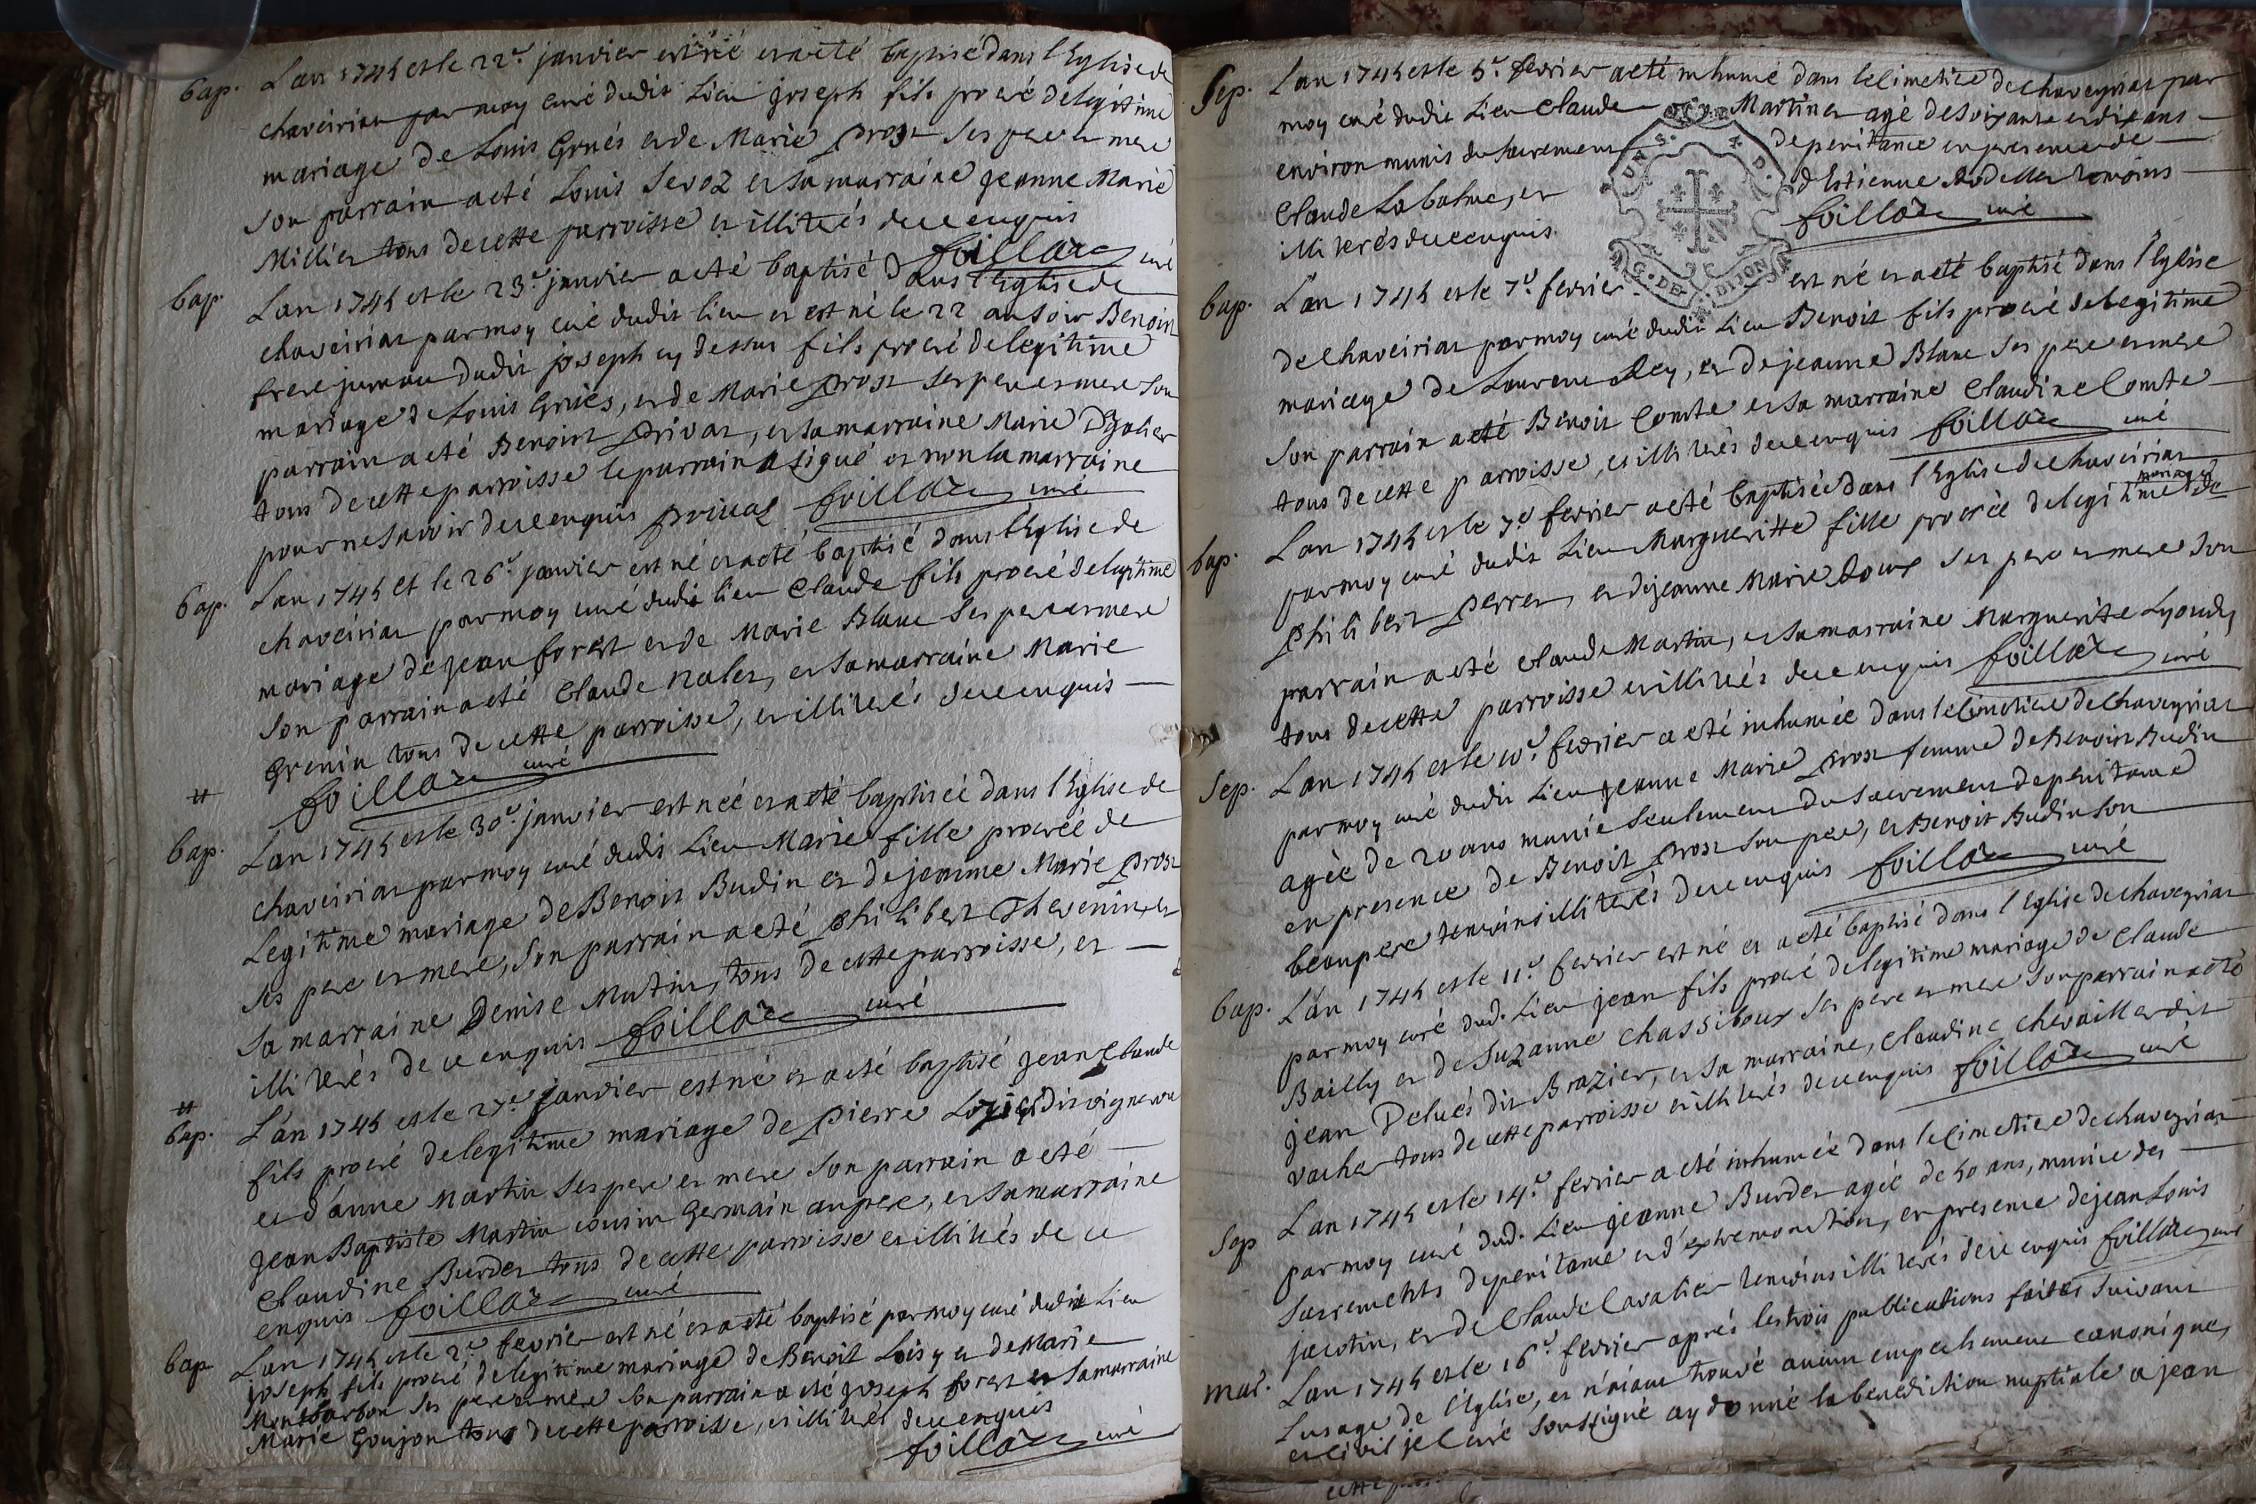 bap. Lan 1745 et le 22e janvier est né et a eté baptisé dans l'Eglise de
chaveiriat par moy curé dudit Lieu joseph fils procré de legitime
mariage de Louis Grués et de Marie prost ses pere et mere
son parrain a eté Louis sevoz et sa marraine jeanne Marie
Millier tous de cette parroisse et illiterés de ce enquis
foillaz curé
bap. Lan 1745 et le 23e janvier a eté baptisé dans l'Eglise de
chaveiriat par moy curé dudit lieu et est né le 22 au soir Benoist
frere jumau dudit joseph cy dessus fils procré de legitime
mariage de Louis Grués, et de Marie prost ses pere et mere son
parrain a eté Benoist privat, et sa marraine Marie
tous de cette parroisse le parrain a signé et non la marraine
pour ne savoir de ce enquis privat foillaz curé
bap. Lan 1745 et le 26e janvier est né et a eté baptisé dans l'Eglise de
chaveiriat par moy curé dudit lieu Claude fils procré de legitime
mariage de jean forest et de Marie Blanc ses pere et mere
son parrain a eté Claude nalet, et sa marraine Marie
Grenin tous de cette parroisse, et illiterés de ce enquis
foillaz curé
bap. Lan 1745 et le 30e janvier est née et a eté baptisée dans l'Eglise de
chaveiriat par moy curé dudit Lieu Marie fille procréé de
Legitime mariage de Benoist Budin et de jeanne Marie prost
ses pere et mere, son parrain a eté philibert Thevenin, et
sa marraine Denise Martin, tous de cette parroisse, et
illiterés de ce enquis foillaz curé
bap. L'an 1745 et le 27e janvier est né et a eté baptisé jean Claude
fils procré de legitime mariage de pierre dit vigneron
et d'anne Martin ses pere et mere son parrain a eté
jean Baptiste Martin cousin Germain au pere, et sa marraine
Claudine Burdet tous de cette parroisse et illiterés de ce
enquis foillaz curé
bap. Lan 1745 et le 2e fevrier est né et a eté baptisé par moy curé dudit Lieu
joseph fils procré de legitime mariage de Benoit Loisy et de Marie
Montbarbon ses pere et mere son parrain a eté joseph forest et sa marraine
Marie Goujon tous de cette parroisse, et illiterés de ce enquis
foillaz curé
Sep. Lan 1745 et le 5e fevrier a eté inhumé dans le cimetiere de chaveyriat par
moy curé dudit Lieu Claude Martinet agé de soixante et dix ans
environ munis du sacrement de penitance en presence de
Claude Labalme, et d'Estienne temoins
illiterés de ce enquis. foillaz curé
UNS. D. G. DE DIJON
bap. L'an 1745 et le 7e fevrier est né et a eté baptisé dans l'Eglise
de Chaveiriat par moy curé dudit Lieu Benoit fils procré de legitime
mariage de Laurent Rey, et de jeanne Blanc ses pere et mere
son parrain a eté Benoit Comte et sa marraine Claudine Comte
tous de cette parroisse, et illiterés de ce enquis foillaz curé
bap. Lan 1745 et le 7e fevrier a eté baptisée dans l'Eglise de chaveiriat
par moy curé dudit Lieu Margueritte fille procréé de legitime mariage de
philibert perret, et de jeanne Marie Doux ses pere et mere son
parrain a eté Claude Martin, et sa marraine Marguerite
tous de cette parroisse et illiterés de ce enquis foillaz curé
Sep. Lan 1745 et le 10e fevrier a eté inhumée dans le cimetiere de chaveyriat
par moy curé dudit Lieu jeanne Marie prost femme de Benoist Budin
agée de 20 ans munie seulement du sacrement de penitance
en presence de Benoit prost son pere, et Benoit Budin son
beaupere temoins illiterés de ce enquis foillaz curé
bap. L'an 1745 et le 11e fevrier est né et a eté baptisé dans l'Eglise de chaveyriat
par moy curé dud. Lieu jean fils procré de legitime mariage de Claude
Bailly et de Suzanne Chassiboux ses pere et mere son parrain a eté
jean Delués dit Brazier, et sa marraine, Claudine Chevaillier dit
vacher tous de cette parroisse et illiterés de ce enquis foillaz curé
Sep Lan 1745 et le 14e fevrier a eté inhumée dans le cimetiere de chaveyriat
par moy curé dud. Lieu jeanne Burdet agée de 50 ans, munie des
sacrements de penitance et d'extremonction, en presence de jean Louis
jacotin, et de Claude Cavalier temoins illiterés de ce enquis foillaz curé
mar. Lan 1745 et le 16e fevrier aprés les trois publications faites suivant
Lusage de l'Eglise, et n'aiant trouvé aucun empechement canonique,
et civil je curé soussigné ay donné la benediction nuptiale a jean